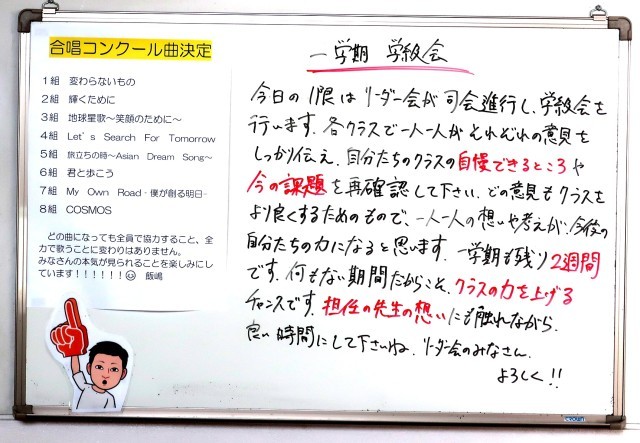 合唱コンクール曲決定
1組　変わらないもの
2組　輝くために
3組　地球星歌～笑顔のために～
4組　Let's Search For Tomorrow
5組　旅立ちの時～Asian Dream Song～
6組　君と歩こう
7組　My Own Road -僕が創る明日-
8組　COSMOS
どの曲になっても全員で協力すること、全
力で歌うことに変わりはありません。
みなさんの本気が見られることを楽しみにし
ています！！！！！！☺　飯嶋
一学期 学級会
今日の1限はリーダー会が司会進行し、学級会を
行います。各クラスで一人一人がそれぞれの意見を
しっかり伝え、自分たちのクラスの自慢できるところや
今の課題を再確認して下さい。どの意見もクラスを
より良くするためのもので、一人一人の想いや考えが、今後の
自分たちの力になると思います。一学期も残り2週間
です。何もない期間だからこそ、クラスの力を上げる
チャンスです。担任の先生の想いにも触れながら、
良い時間にして下さいね。リーダー会のみなさん、
よろしく!!
CROWN